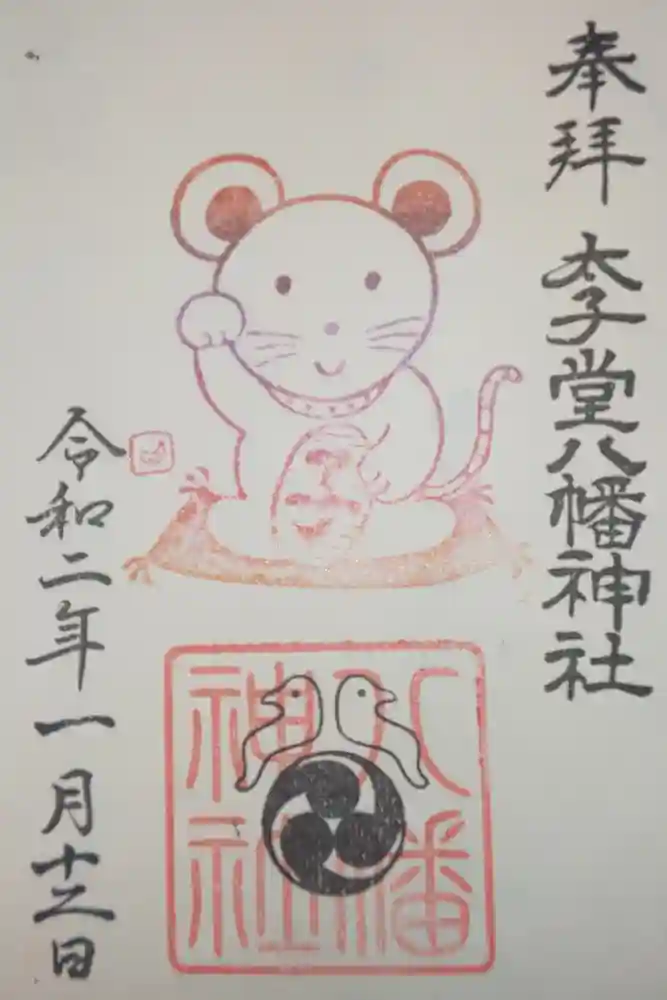 奉拝
太子堂八幡神社
令和二年一月十二日
八幡
神社